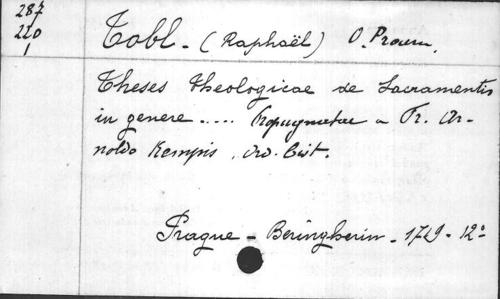 287
220
1
Tobl - (Raphaël) O. Praem.
Theses theologicae de Sacramentis
in genere ..... Propugnatae a Fr. Ar-
noldo Kempis, ord. Cist.
Prague - Beringherin - 1729 - 12°